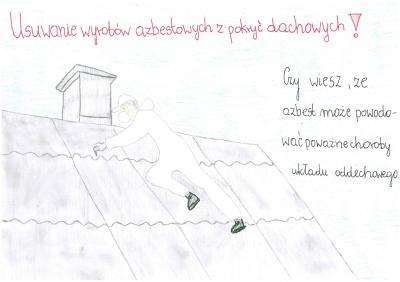 Usuwanie wyrobów azbestowych z pokryć dachowych!
Czy wiesz, że
azbest może powodo-
wać poważne choroby
układu oddechowego